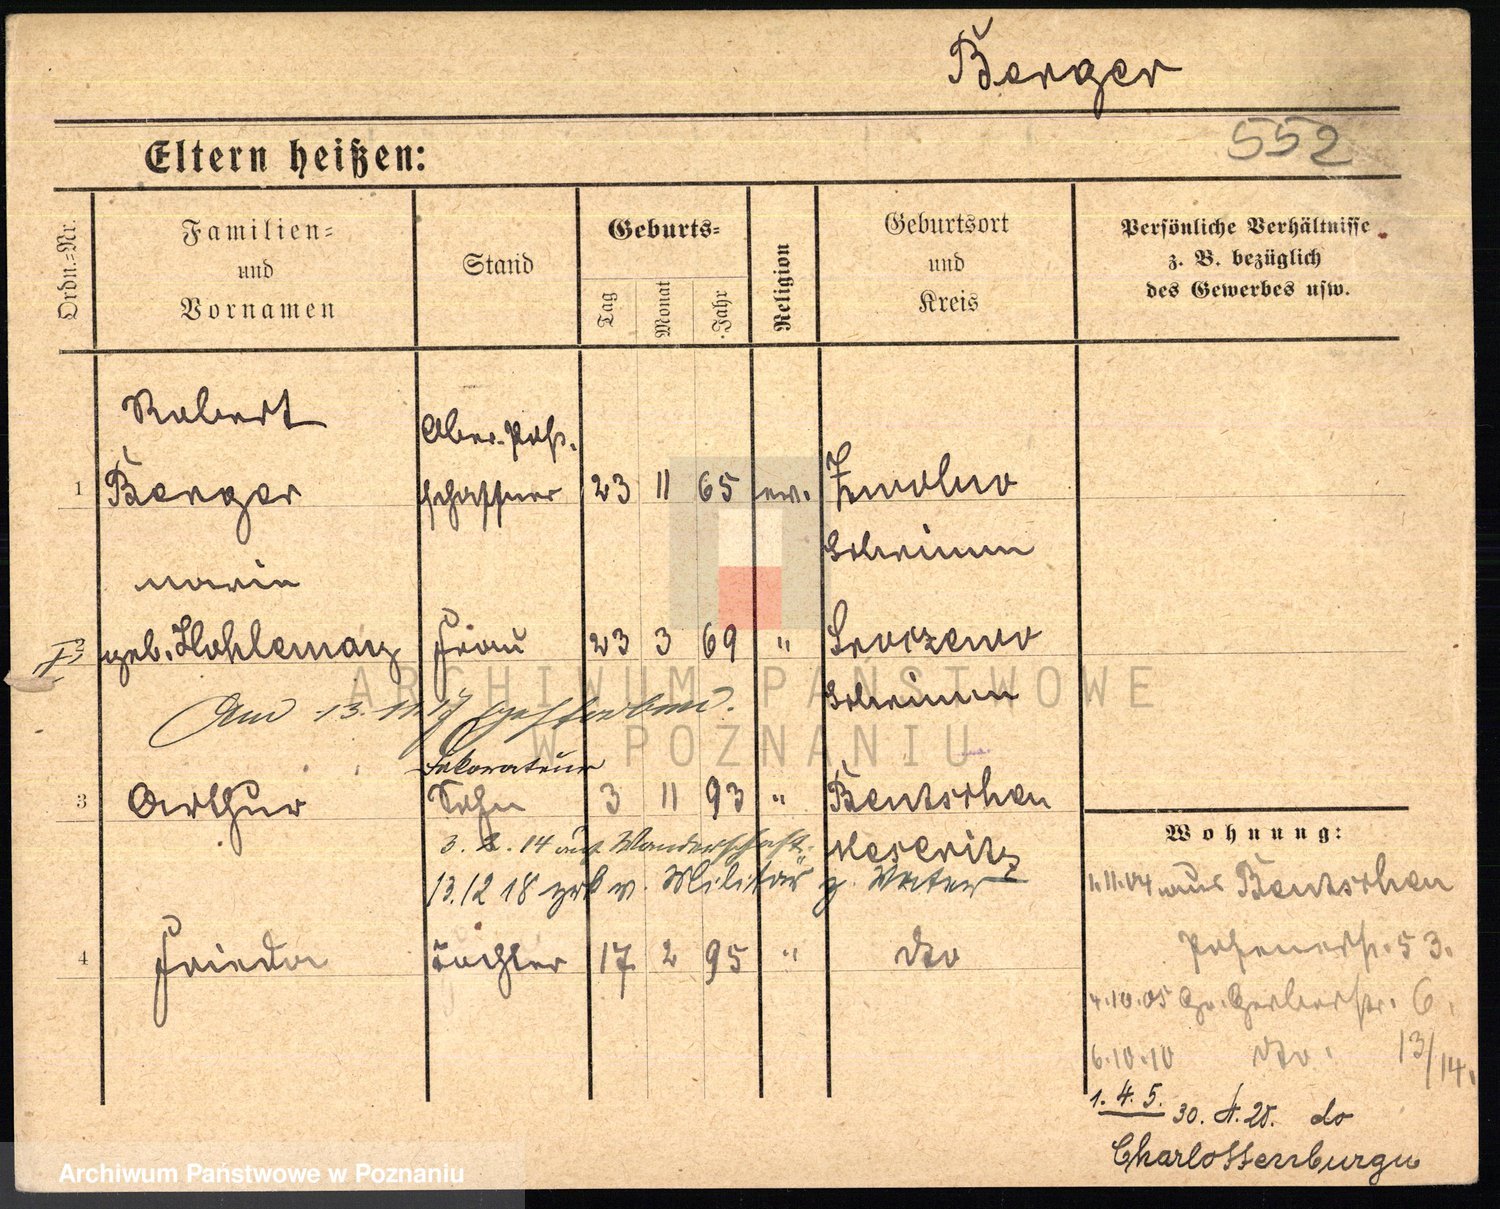 Berger
552
Eltern heißen:
Ordn.-Nr.
Familien-
und
Vornamen
Stand
Geburts-
Tag
Monat
Jahr
Religion
Geburtsort
und
Kreis
Persönliche Verhältnisse
z. B. bezüglich
des Gewerbes usw.
Robert
Ober-Post-
1 Berger schaffner 23 11 65 ev.
Schrimm
Marie
geb. Frau 23 3 69 "
Schrimm
Am 13. 11. 17 gestorben.
Dekorateur
3 Arthur Sohn 3 11 93 " Bentschen
3. 2. 14 auf Wanderschaft. Meseritz
13.12 18 zrk v. Militär z. Vater
4 Frieda Tochter 17 2 95 " dto
Wohnung:
1.11.04 aus Bentschen
Posenerstr. 53.
4.10.05 Gr. Gerberstr. 6.
6.10.10 dto. 13/14.
1. 4. 5. 30. 4. 20. do
Charlottenburgu
ARCHIWUM PAŃSTWOWE
W POZNANIU
Archiwum Państwowe w Poznaniu